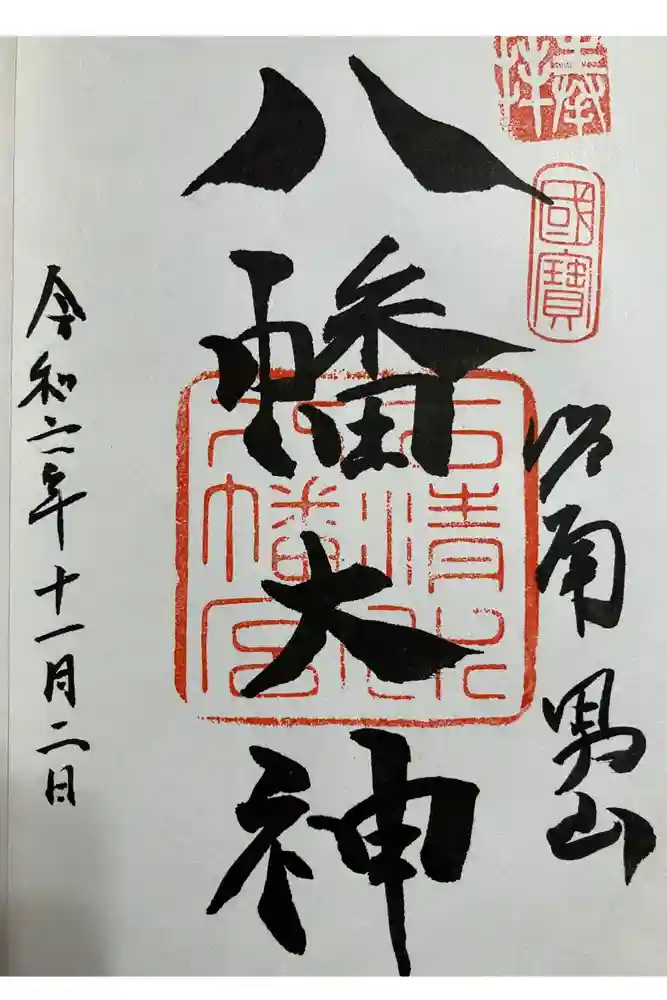 奉拝
國寶
洛南 男山
八幡大神
石清水
八幡宮
令和二年十一月二日